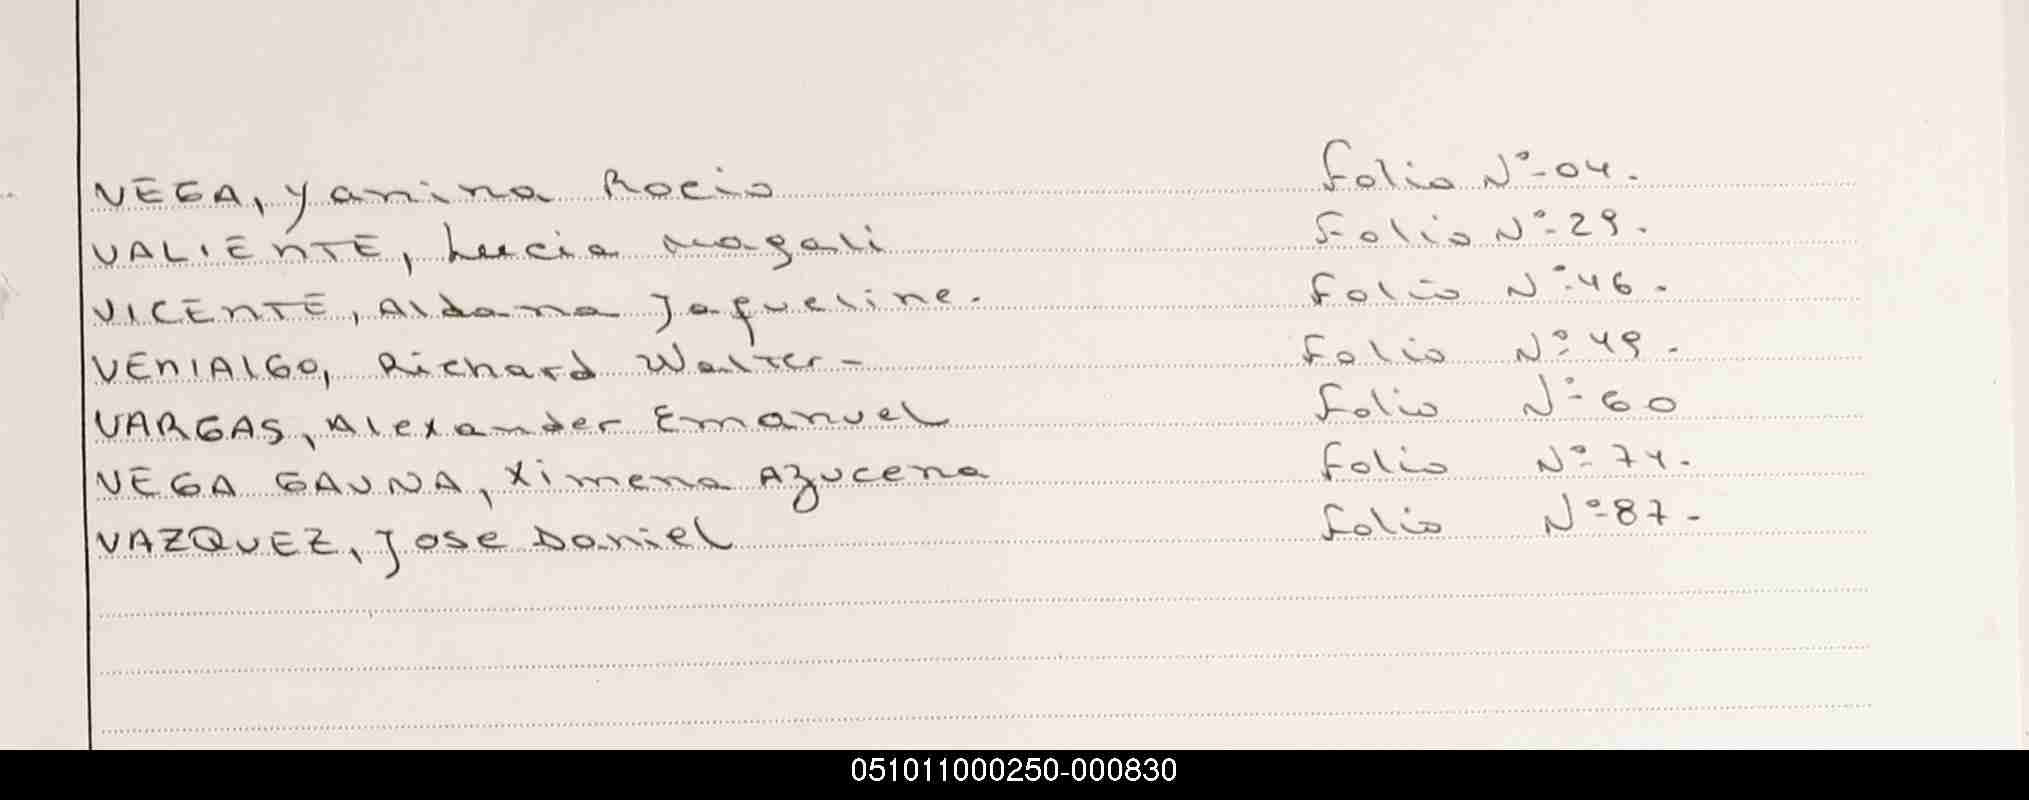 VEGA, Yanina Rocio Folio Nº-04.
VALIENTE, Lucia Magali Folio Nº-29.
VICENTE, Aldana Jaqueline. Folio Nº-46.
VENIALGO, Richard Walter- Folio Nº 49.
VARGAS, Alexander Emanuel Folio Nº-60
VEGA GAUNA, Ximena Azucena Folio Nº-74.
VAZQUEZ, Jose Daniel Folio Nº-87-
051011000250-000830